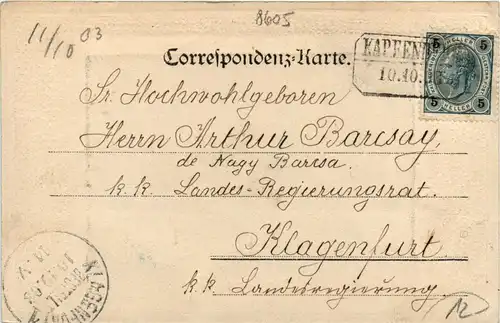 8605
11/10 03
Correspondenz-Karte.
KAPFENB
10.10.
5 5
HELLER
5 5
Sr. Hochwohlgeboren
Herrn Arthur Barcsay,
de Nagy Barcsa
k. k. Landes-Regierungsrat.
Klagenfurt
k. k. Landesregierung
KLAGENFURT
12